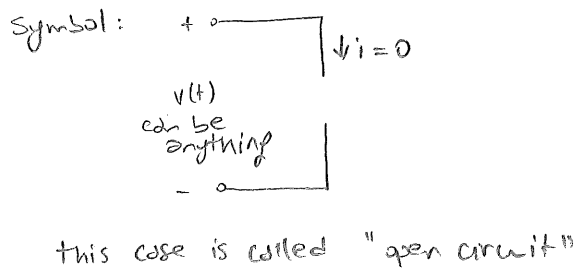 Symbol: +
↓i=0
v(t)
can be
anything
-
this case is called "open circuit"